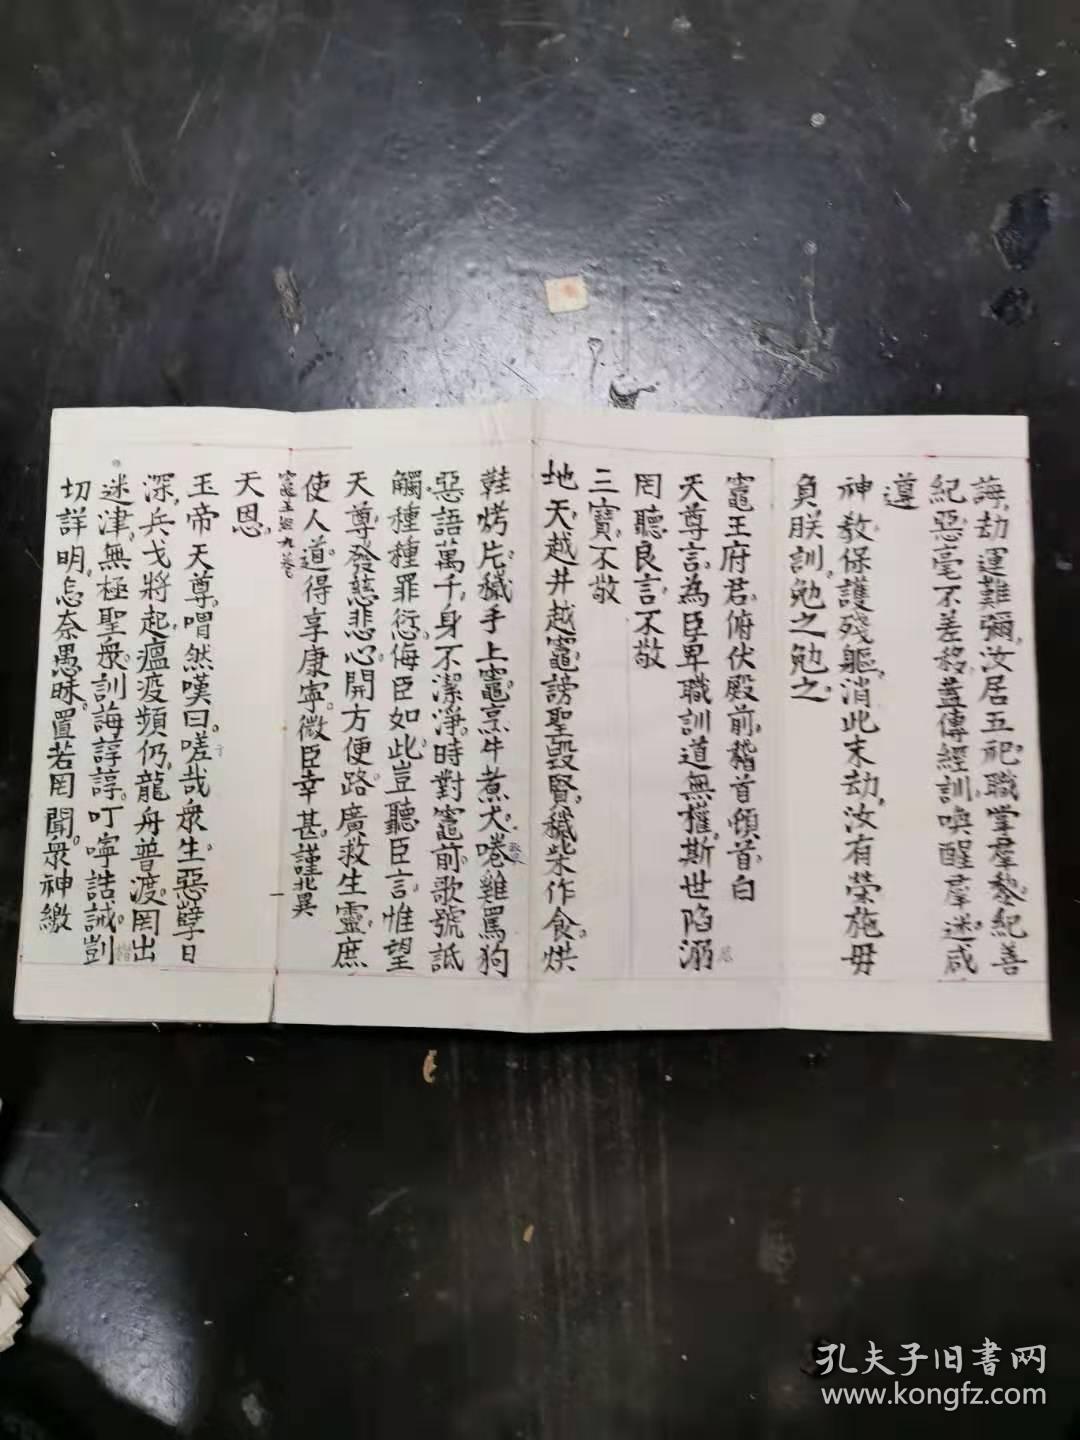 誨劫運難彌汝居五祀職掌羣黎紀善
紀惡毫不差移蓋傳經訓喚醒羣迷咸
遵
神教保護殘軀消此末劫汝有榮施毋
負朕訓勉之勉之
竈王府君俯伏殿前稽首傾首白
天尊言為臣卑職訓道無權斯世陷溺
罔聽良言不敬
三寶不敬
地天越井越竈謗聖毀賢穢柴作食烘
鞋烤片穢手上竈烹牛煮犬嗟雞罵狗
惡語萬千身不潔淨時對竈前歌號詆
觸種種罪愆侮臣如此豈聽臣言惟望
天尊發慈悲心開方便路廣救生靈庶
使人道得享康寧微臣幸甚謹此異
竈王經九卷
一
天恩
玉帝天尊喟然嘆曰嗟哉眾生惡孽日
深兵戈將起瘟疫頻仍龍舟普渡罔出
迷津無極聖眾訓誨諄諄叮嚀誥誡剴
切詳明怎奈愚昧置若罔聞眾神繳
孔夫子旧書网
www.kongfz.com